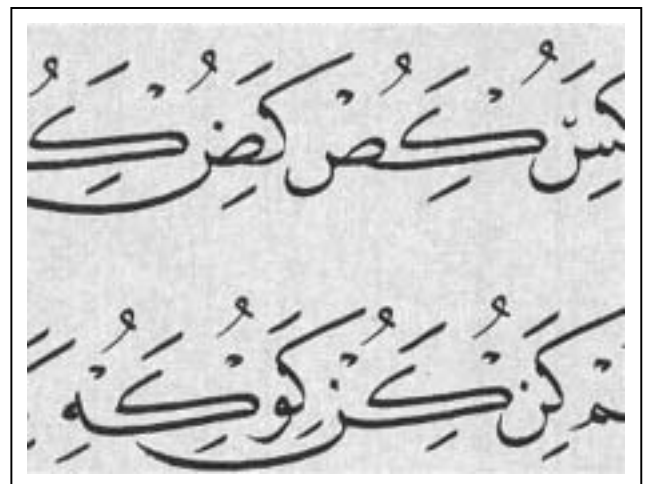 كس كص كض
كن كن كو كه